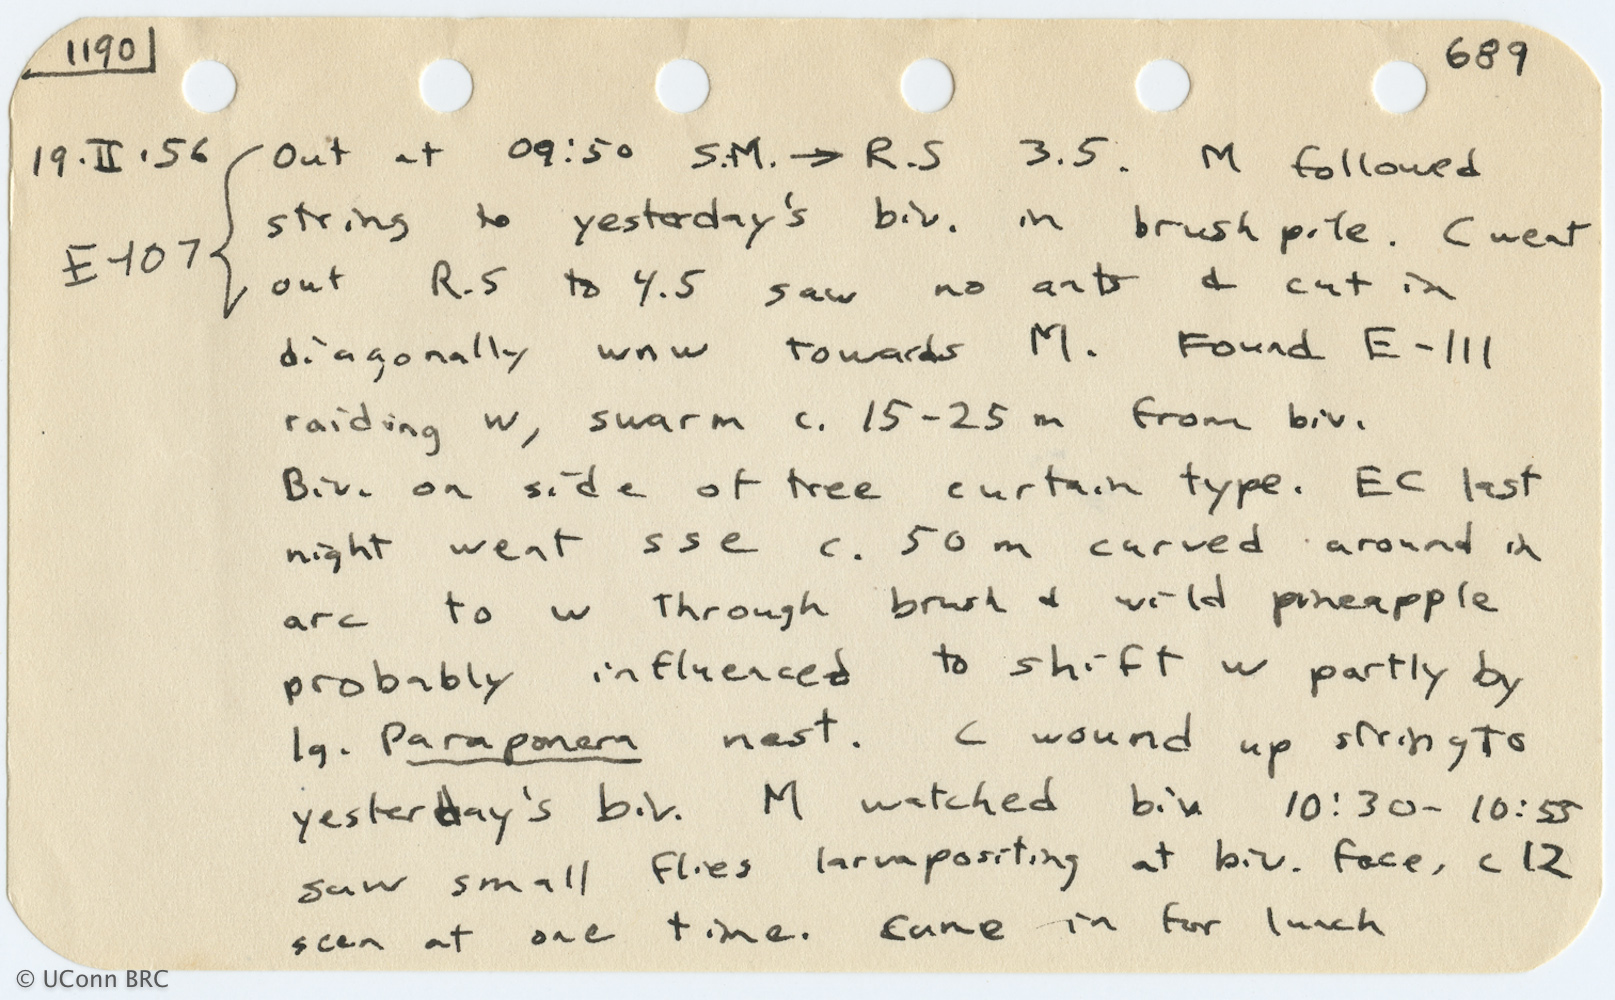 1190
689
19.II.56 Out at 09:50 S.M. → R.S 3.5. M followed
string to yesterday's biv. in brush pile. C went
E-107
out R.S to 4.5 saw no ants & cut in
diagonally wnw towards M. Found E-111
raiding w, swarm c. 15-25 m from biv.
Biv. on side of tree curtain type. EC last
night went sse c. 50 m curved around in
arc to w through brush & wild pineapple
probably influenced to shift w partly by
lg. Paraponera nest. C wound up string to
yesterday's biv. M watched biv 10:30-10:55
saw small flies larvapositing at biv. face, c 12
seen at one time. Came in for lunch
© UConn BRC